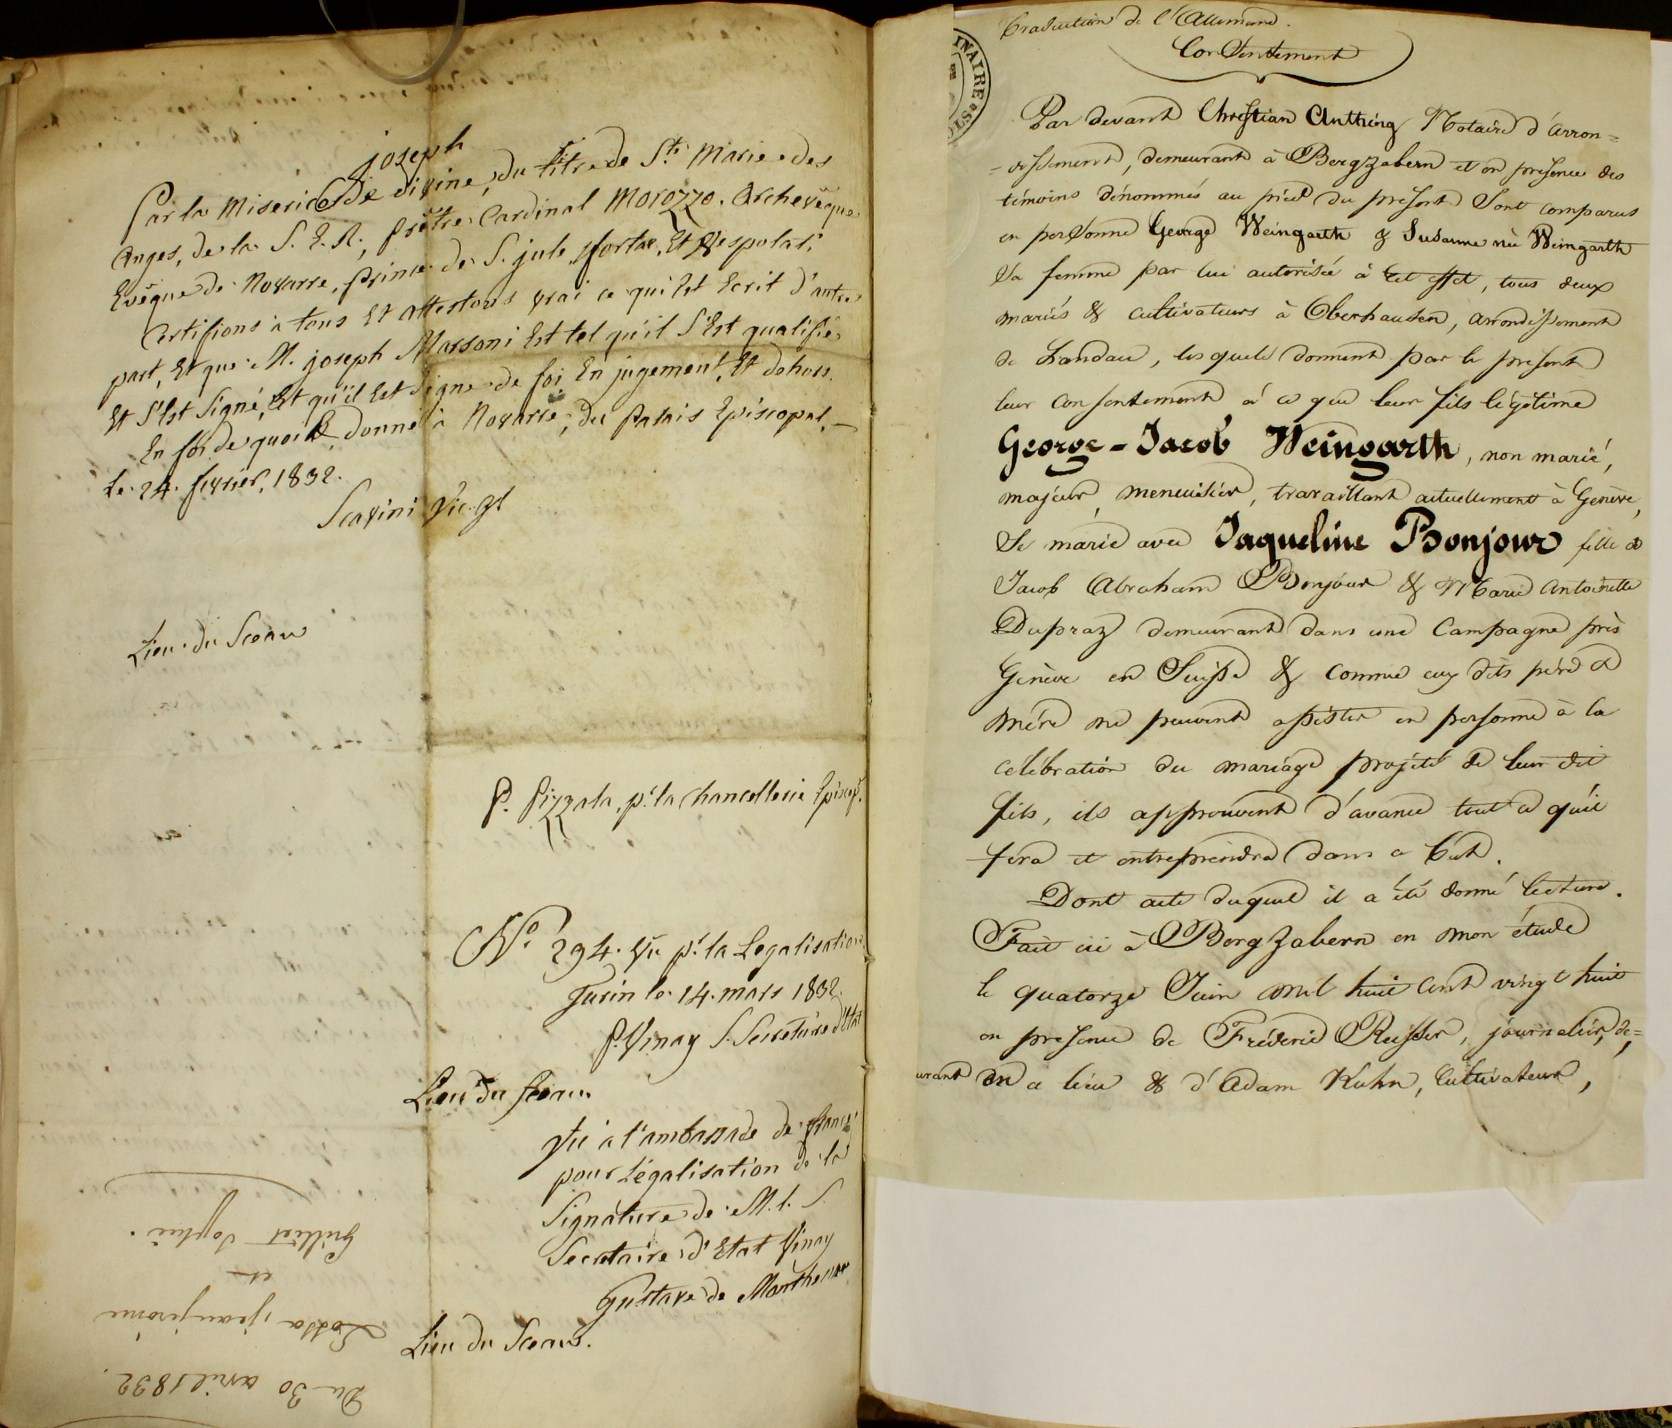 joseph
Par la Misericorde divine, du titre de Ste Marie des
Anges, de la S. E. R., prêtre Cardinal Morozzo. Archevêque
Evêque de Novarre, prince de S. jule, d'ortae, Et Vespolat.
Certifions à tous Et attestons vrai ce qui Est Ecrit d'autre
part, Et que M. joseph Massoni Est tel qu'il S'Est qualifié
Et S'Est Signé, Et qu'il Est digne de foi En jugement, Et dehors.
En foi de quoi &. donné à Novarre, du Palais Episcopal. —
Le 24. fevrier, 1832.
Scavini Vic. gl
Lieu du Sceau
P. Pizzala, pr. la Chancellerie Episcop.
No. 294. Vu pr. la Legalisation
Turin le 14. mars 1832.
P. Vinay S. Secretaire d'Etat
Lieu du Sceau.
Vu à l'ambassade de france
pour Légalisation de la
Signature de M. l. S.
Secretaire d'Etat Vinay
Gustave de
Lieu du Sceau.
Du 30 avril 1832.
Lossa, jean jerôme
et
Sophie.
Traduction de l'Allemand.
Consentement
INAIRE
Par devant Christian Anthing Notaire d'arron=
=dissement, demeurant à Bergzabern et en présence des
témoins dénommés au pied du présent Sont comparus
en personne George Weingarth & Susanne née Weingarth
Sa femme par lui autorisée à cet effet, tous deux
mariés & cultivateurs à Oberhausen, arrondissement
de Landau, lesquels donnent par le présent
leur consentement à ce que leur fils légitime
George-Jacob Weingarth, non marié,
majeur, menuisier, travaillant actuellement à Genève,
Se marie avec Jaqueline Bonjour fille de
Jacob Abraham Bonjour & Marie Antoinette
Dupraz demeurant dans une Campagne près
Genève en Suisse & comme eux dits père et
mère ne peuvent assister en personne à la
célébration du mariage projeté de leur dit
fils, ils approuvent d'avance tout ce qu'il
fera et entreprendra dans ce but.
Dont acte duquel il a été donné lecture.
Fait ici à Bergzabern en mon étude
le quatorze Juin mil huit cent vingt huit
en présence de Fréderic Reisser, journalier, de=
urant en ce lieu & d'Adam Kuhn, Cultivateur,